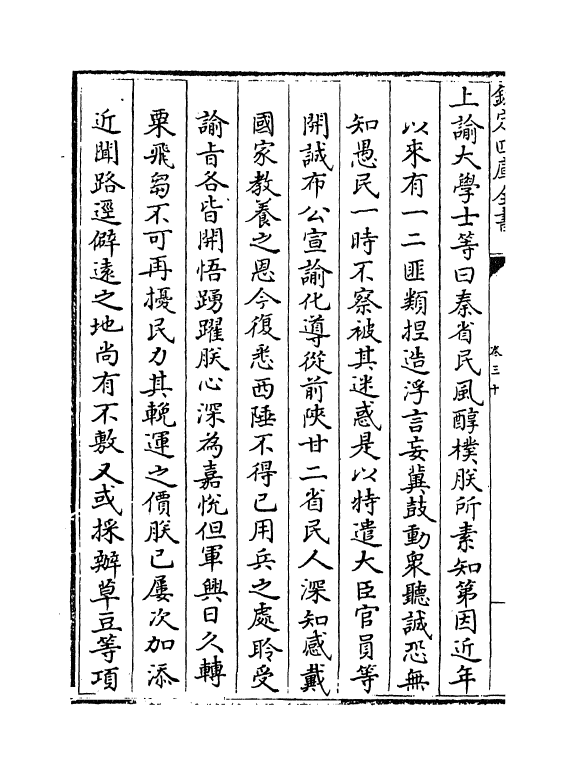 欽定四庫全書
卷三十
上諭大學士等曰秦省民風醇樸朕所素知第因近年
以來有一二匪類捏造浮言妄冀鼓動衆聽誠恐無
知愚民一時不察被其迷惑是以特遣大臣官員等
開誠布公宣諭化導從前陜甘二省民人深知感戴
國家教養之恩今復悉西陲不得已用兵之處聆受
諭旨各皆開悟踴躍朕心深為嘉悅但軍興日久轉
粟飛芻不可再擾民力其輓運之價朕已屢次加添
近聞路逕僻遠之地尚有不敷又或採辦草豆等項